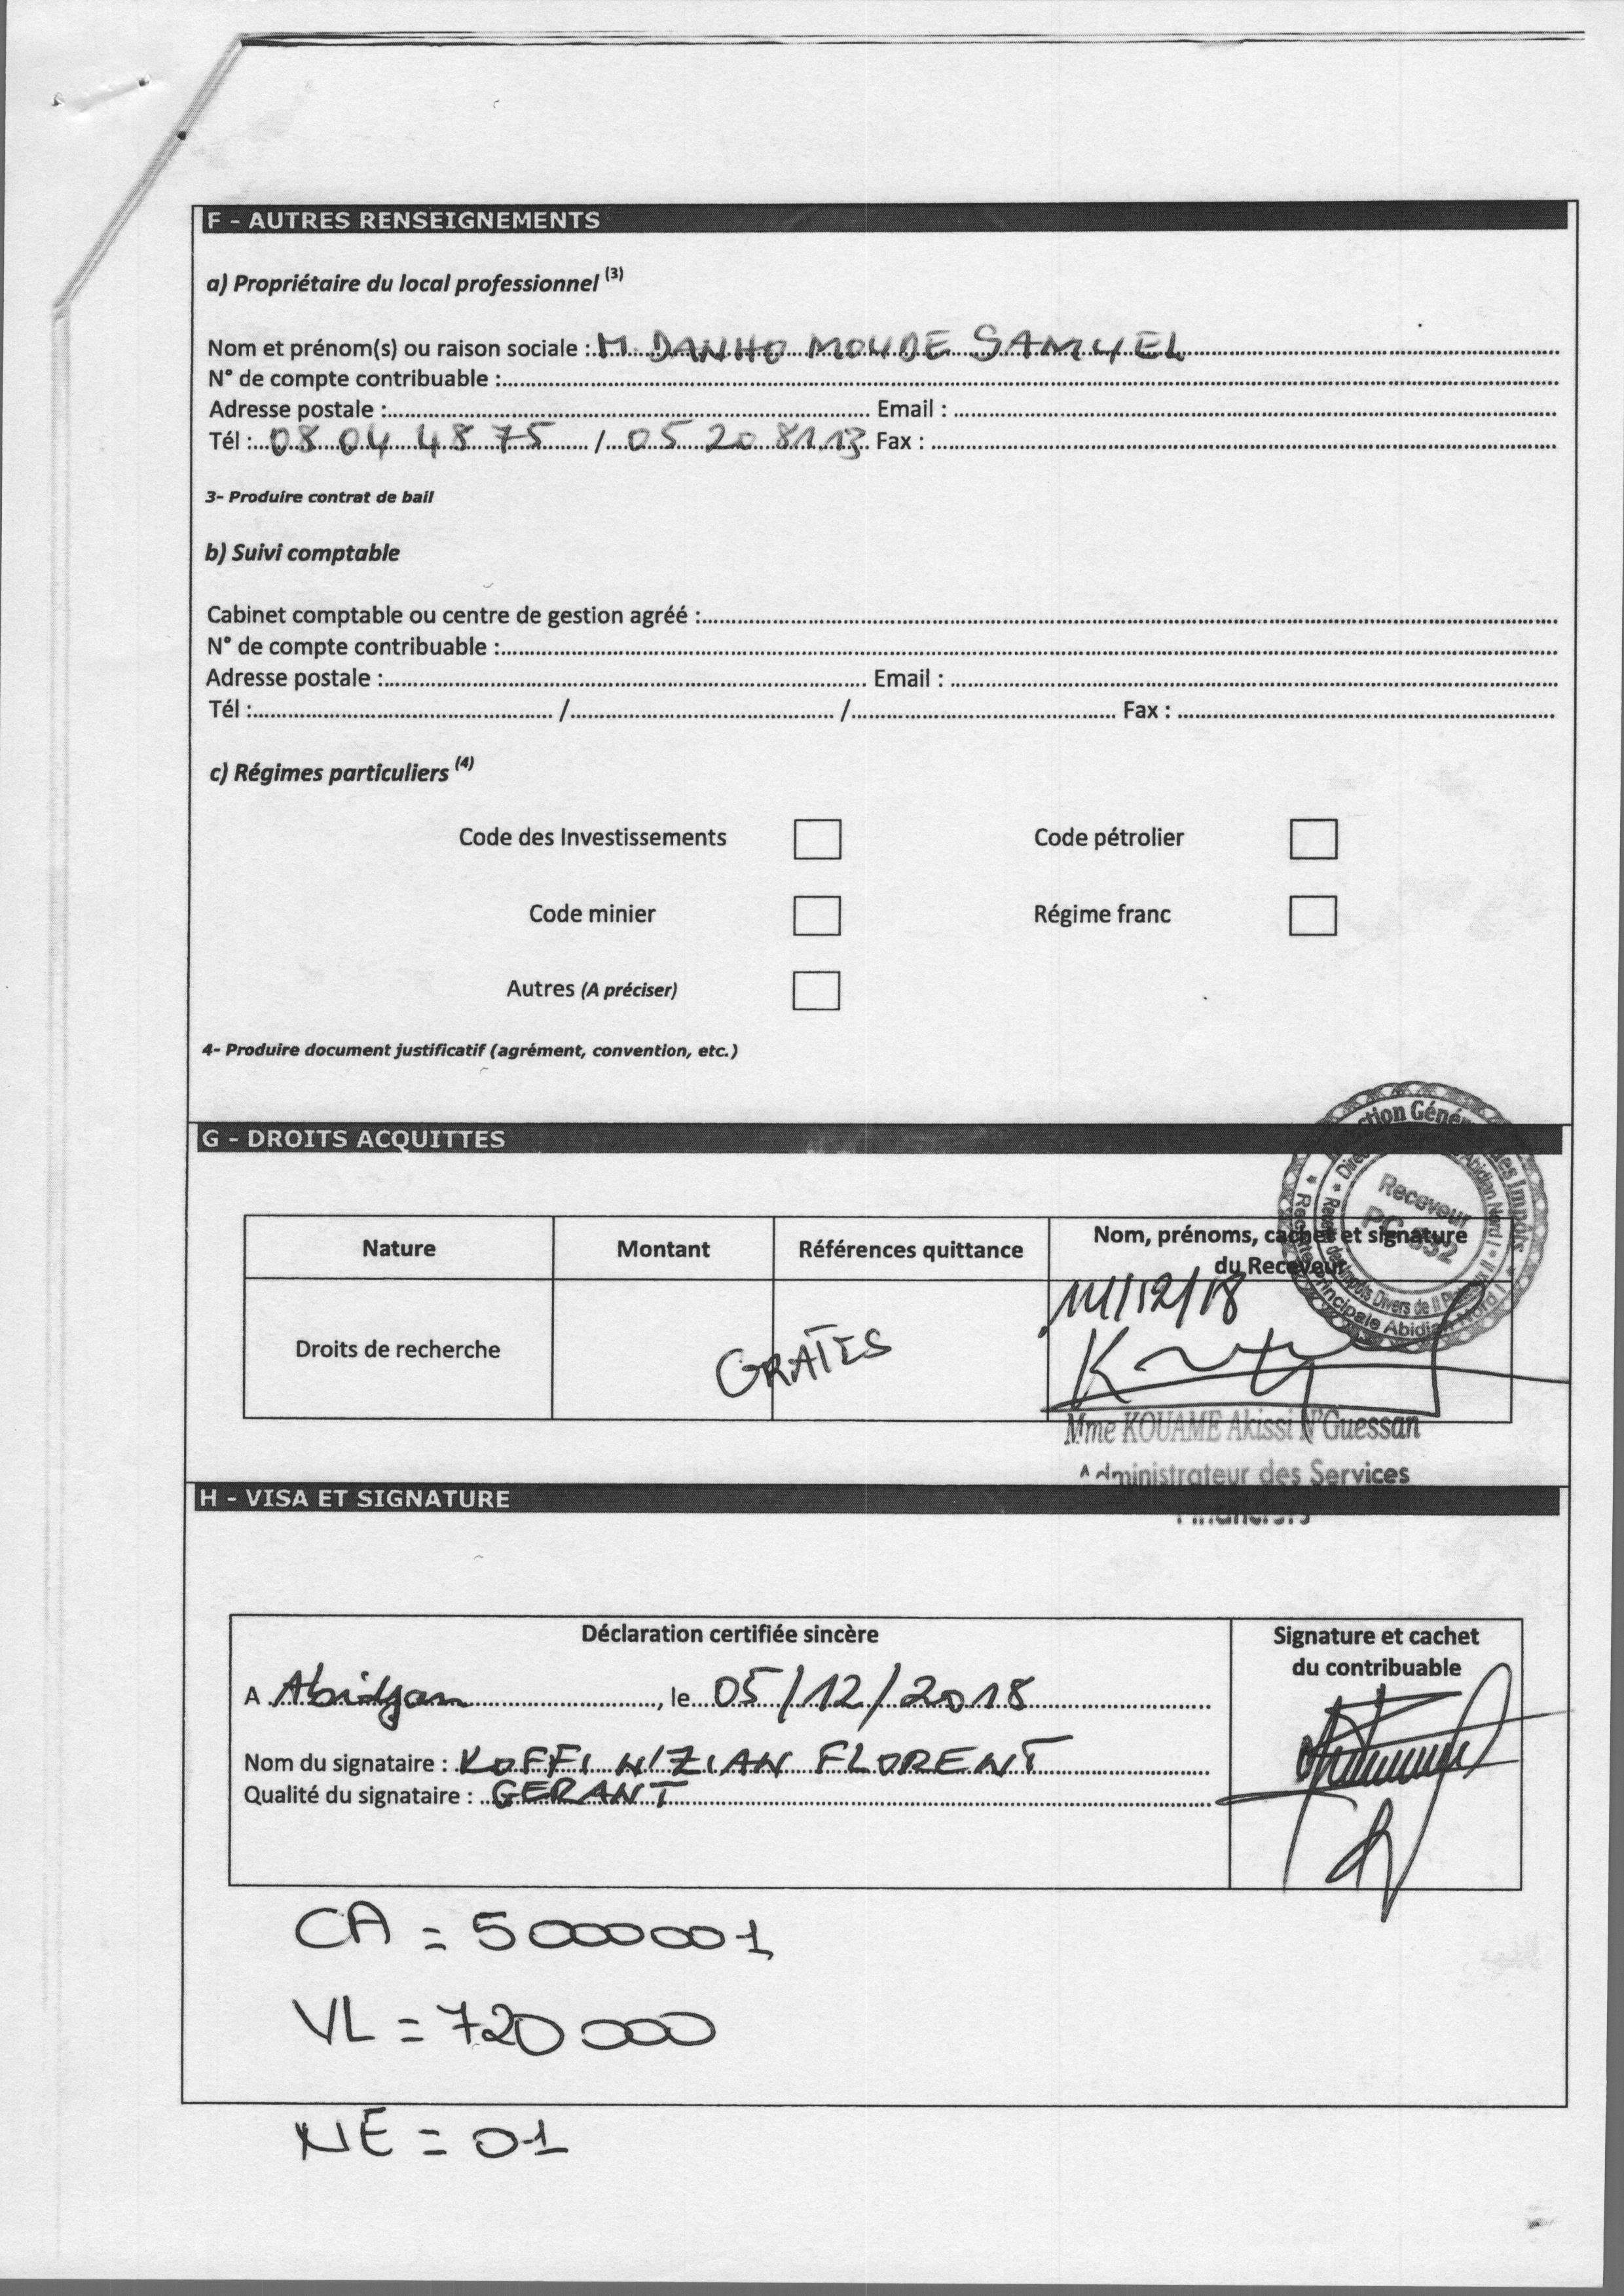 F - AUTRES RENSEIGNEMENTS
a) Propriétaire du local professionnel (3)
Nom et prénom(s) ou raison sociale : M DANHO MOUDE SAMUEL
N° de compte contribuable :
Adresse postale : Email :
Tél : 08 04 48 75 / 05 20 81.13 Fax :
3- Produire contrat de bail
b) Suivi comptable
Cabinet comptable ou centre de gestion agréé :
N° de compte contribuable :
Adresse postale : Email :
Tél : / / Fax :
c) Régimes particuliers (4)
Code des Investissements Code pétrolier
Code minier Régime franc
Autres (A préciser)
4- Produire document justificatif (agrément, convention, etc.)
G - DROITS ACQUITTES
Receveur
Nature Montant Références quittance Nom, prénoms, cachet et signature
du Receveur
Droits de recherche GRATIS
Mme KOUAME Akissi N'Guessan
Administrateur des Services
Financiers
H - VISA ET SIGNATURE
Déclaration certifiée sincère
Signature et cachet
du contribuable
A Abidjan, le 05/12/2018
Nom du signataire : KOFFI N'ZIAN FLORENT
Qualité du signataire : GERANT
CA = 5000001
VL = 720 000
NE = 01